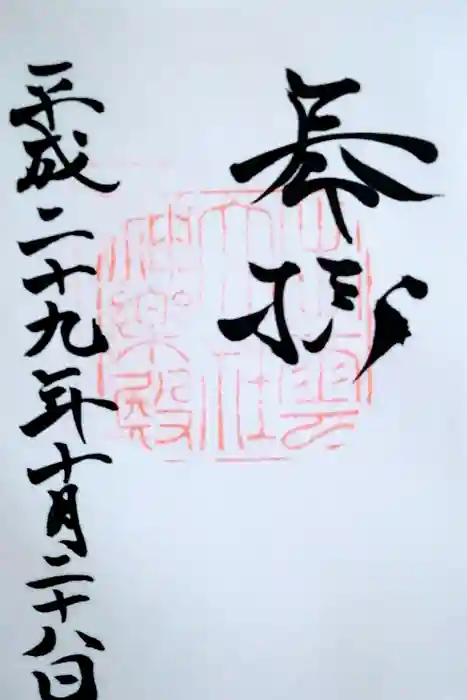 奉拝
出雲
大社
神楽殿
平成二十九年十月二十八日